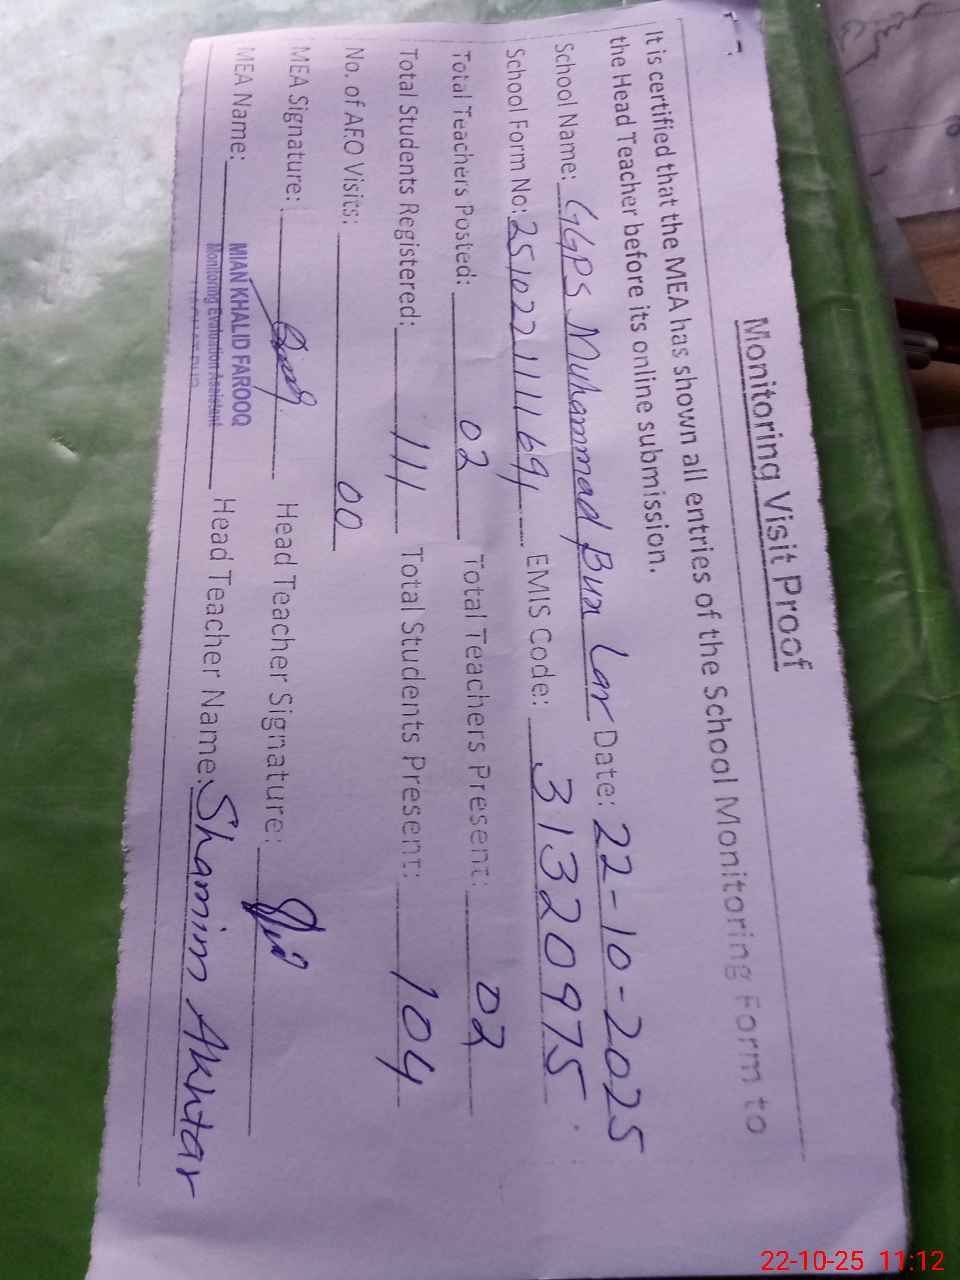 Monitoring Visit Proof
It is certified that the MEA has shown all entries of the School Monitoring Form to
the Head Teacher before its online submission.
School Name: GGPS Muhammad Bux Lar Date: 22-10-2025
School Form No: EMIS Code: 31320975
Total Teachers Posted: 02 Total Teachers Present: 02
Total Students Registered: 111 Total Students Present: 104
No. of AEO Visits: 00
MEA Signature: Head Teacher Signature:
MEA Name: MIAN KHALID FAROOQ Head Teacher Name: Shamim Akhtar
Monitoring Evaluation Assistant
22-10-25 11:12